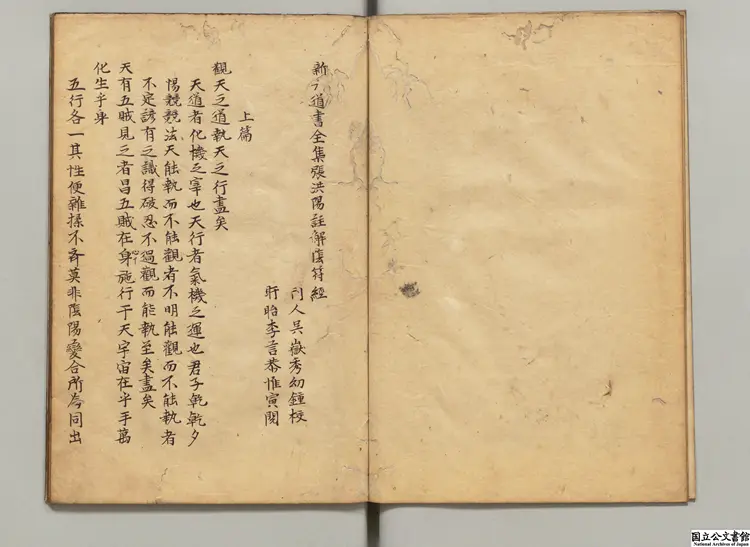 新刊道書全集張洪陽註解陰符經
刊人吳嶽秀幼鍾校
盱眙李言恭惟寅閱
上篇
觀天之道執天之行盡矣
天道者化機之宰也天行者氣機之運也君子乾乾夕
惕兢兢法天能執而不能觀者不明能觀而不能執者
不定諺有之識得破忍不過觀而能執至矣盡矣
天有五賊見之者昌五賊在身施行于天宇宙在乎手萬
化生乎身
五行各一其性便雜揉不齊莫非陰陽變合所為同出
国立公文書館
National Archives of Japan